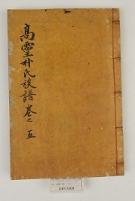 高靈朴氏族譜卷之五